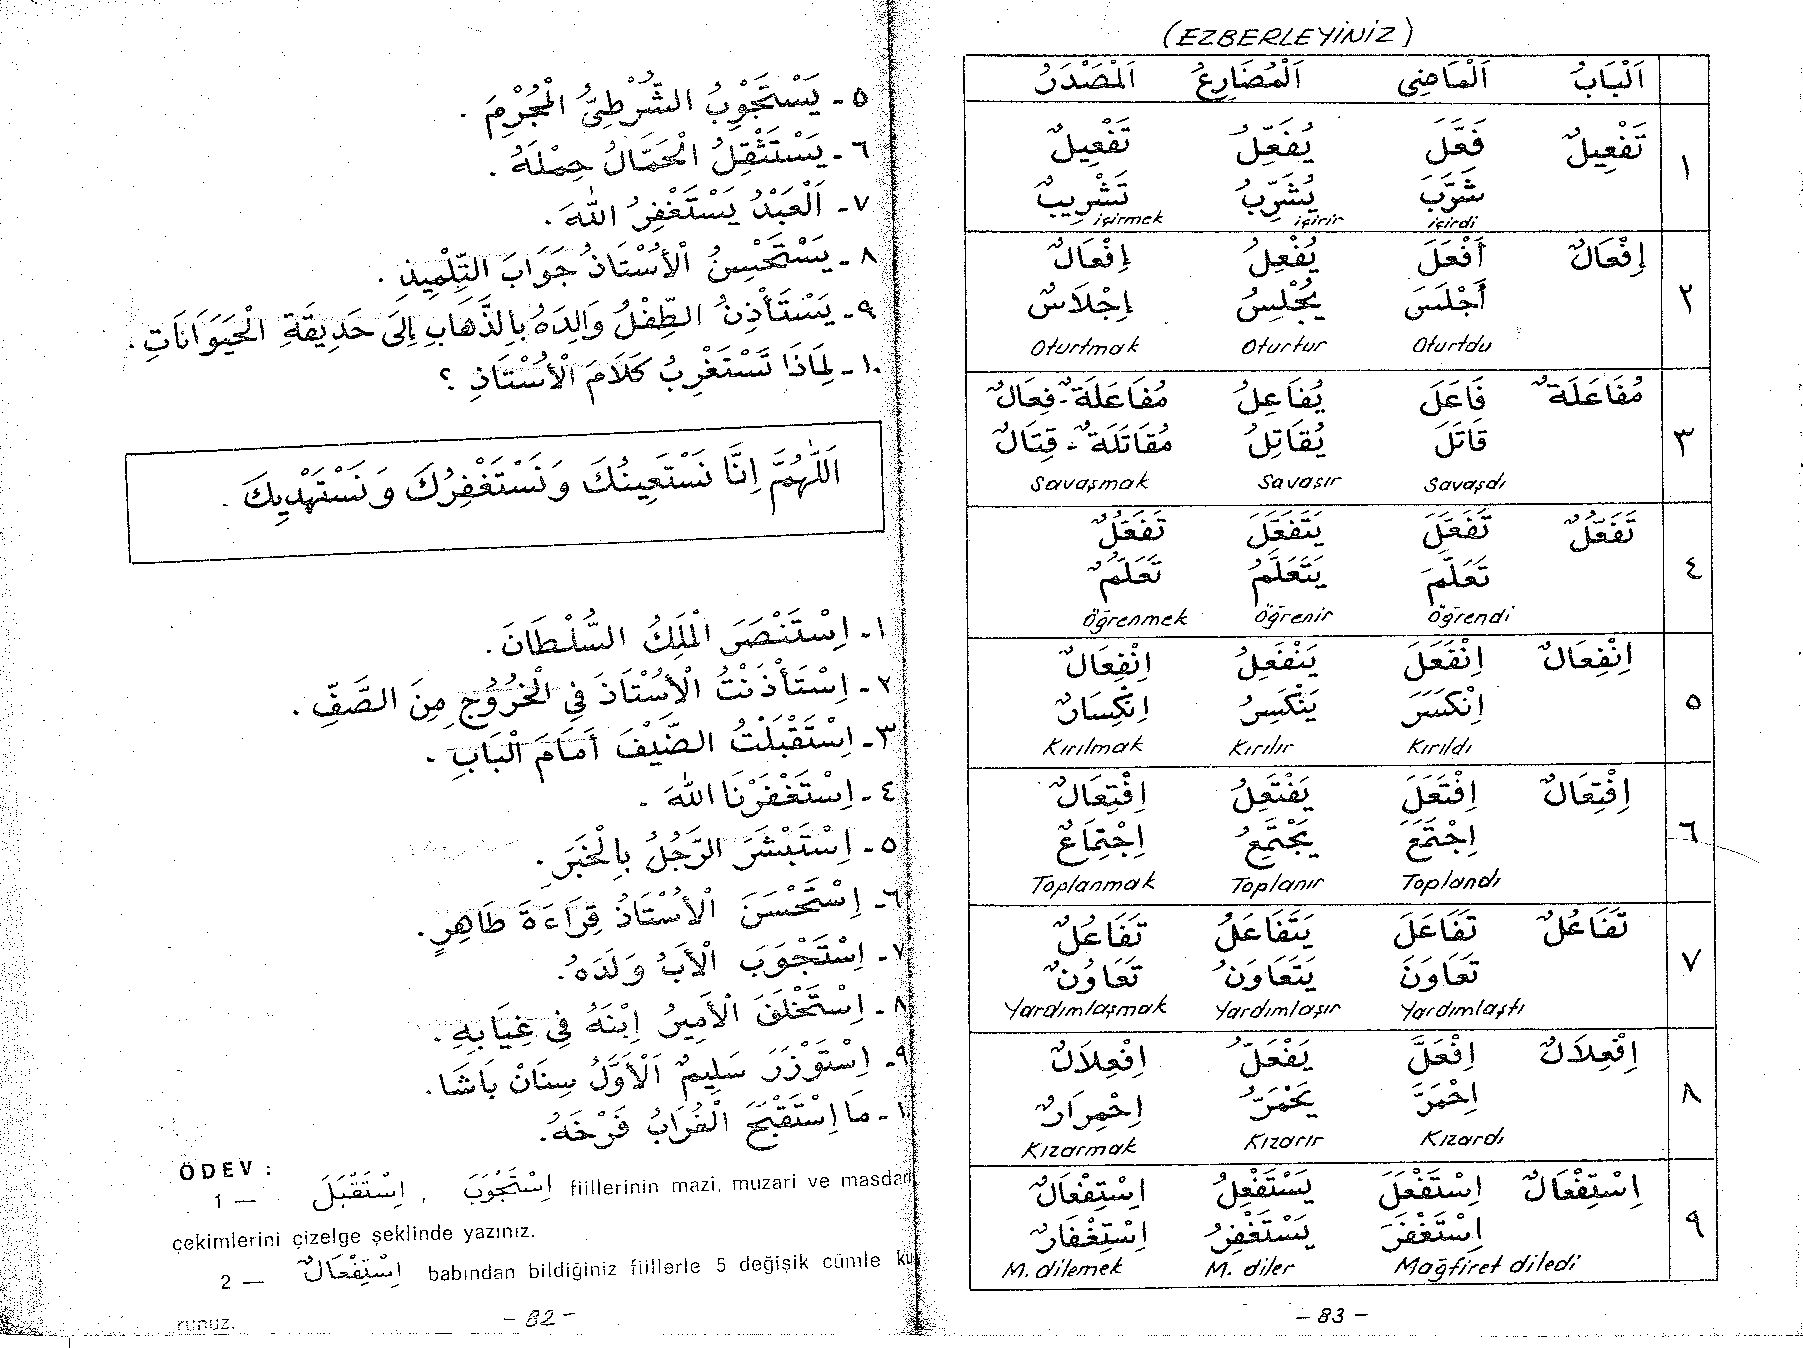 ٥ـ يَسْتَجْوِبُ الشُّرْطِيُّ الْمُجْرِمَ .
٦ـ يَسْتَثْقِلُ الْحَمَّالُ حِمْلَهُ .
٧ـ اَلْعَبْدُ يَسْتَغْفِرُ اللّٰهَ .
٨ـ يَسْتَحْسِنُ الْأُسْتَاذُ جَوَابَ التِّلْمِيذِ .
٩ـ يَسْتَأْذِنُ الطِّفْلُ وَالِدَهُ بِالذَّهَابِ إِلَى حَدِيقَةِ الْحَيَوَانَاتِ .
١٠ـ لِمَاذَا تَسْتَغْرِبُ كَلَامَ الْأُسْتَاذِ ؟
اَللّٰهُمَّ اِنَّا نَسْتَعِينُكَ وَنَسْتَغْفِرُكَ وَنَسْتَهْدِيكَ .
١ـ اِسْتَنْصَرَ الْمَلِكُ السُّلْطَانَ .
٢ـ اِسْتَأْذَنْتُ الْأُسْتَاذَ فِي الْخُرُوجِ مِنَ الصَّفِّ .
٣ـ اِسْتَقْبَلْتُ الضَّيْفَ أَمَامَ الْبَابِ .
٤ـ اِسْتَغْفَرْنَا اللّٰهَ .
٥ـ اِسْتَبْشَرَ الرَّجُلُ بِالْخَبَرِ .
٦ـ اِسْتَحْسَنَ الْأُسْتَاذُ قِرَاءَةَ طَاهِرٍ .
٧ـ اِسْتَجْوَبَ الْأَبُ وَلَدَهُ .
٨ـ اِسْتَخْلَفَ الْأَمِيرُ اِبْنَهُ فِي غِيَابِهِ .
٩ـ اِسْتَوْزَرَ سَلِيمٌ اَلْأَوَّلُ سِنَانْ بَاشَا .
١٠ـ مَا اِسْتَقْبَحَ الْغُرَابُ فَرْخَهُ .
ÖDEV :
1 — اِسْتَجْوَبَ , اِسْتَقْبَلَ fiillerinin mazi, muzari ve masdar
çekimlerini çizelge şeklinde yazınız.
2 — اِسْتِفْعَالٌ babından bildiğiniz fiillerle 5 değişik cümle ku
runuz.
- 82 -
(EZBERLEYİNİZ)
اَلْبَابُ اَلْمَاضِى اَلْمُضَارِعُ اَلْمَصْدَرُ
١ تَفْعِيلٌ فَعَّلَ يُفَعِّلُ تَفْعِيلٌ
شَرَّبَ يُشَرِّبُ تَشْرِيبٌ
içirdi içirir içirmek
٢ إِفْعَالٌ أَفْعَلَ يُفْعِلُ إِفْعَالٌ
أَجْلَسَ يُجْلِسُ إِجْلَاسٌ
Oturtdu Oturtur Oturtmak
٣ مُفَاعَلَةٌ فَاعَلَ يُفَاعِلُ مُفَاعَلَةٌ - فِعَالٌ
قَاتَلَ يُقَاتِلُ مُقَاتَلَةٌ - قِتَالٌ
Savaşdı Savaşır Savaşmak
٤ تَفَعُّلٌ تَفَعَّلَ يَتَفَعَّلُ تَفَعُّلٌ
تَعَلَّمَ يَتَعَلَّمُ تَعَلُّمٌ
Öğrendi Öğrenir Öğrenmek
٥ اِنْفِعَالٌ اِنْفَعَلَ يَنْفَعِلُ اِنْفِعَالٌ
اِنْكَسَرَ يَنْكَسِرُ اِنْكِسَارٌ
Kırıldı Kırılır Kırılmak
٦ اِفْتِعَالٌ اِفْتَعَلَ يَفْتَعِلُ اِفْتِعَالٌ
اِجْتَمَعَ يَجْتَمِعُ اِجْتِمَاعٌ
Toplandı Toplanır Toplanmak
٧ تَفَاعُلٌ تَفَاعَلَ يَتَفَاعَلُ تَفَاعُلٌ
تَعَاوَنَ يَتَعَاوَنُ تَعَاوُنٌ
Yardımlaştı Yardımlaşır Yardımlaşmak
٨ اِفْعِلَالٌ اِفْعَلَّ يَفْعَلُّ اِفْعِلَالٌ
اِحْمَرَّ يَحْمَرُّ اِحْمِرَارٌ
Kızardı Kızarır Kızarmak
٩ اِسْتِفْعَالٌ اِسْتَفْعَلَ يَسْتَفْعِلُ اِسْتِفْعَالٌ
اِسْتَغْفَرَ يَسْتَغْفِرُ اِسْتِغْفَارٌ
Mağfiret diledi M. diler M. dilemek
- 83 -